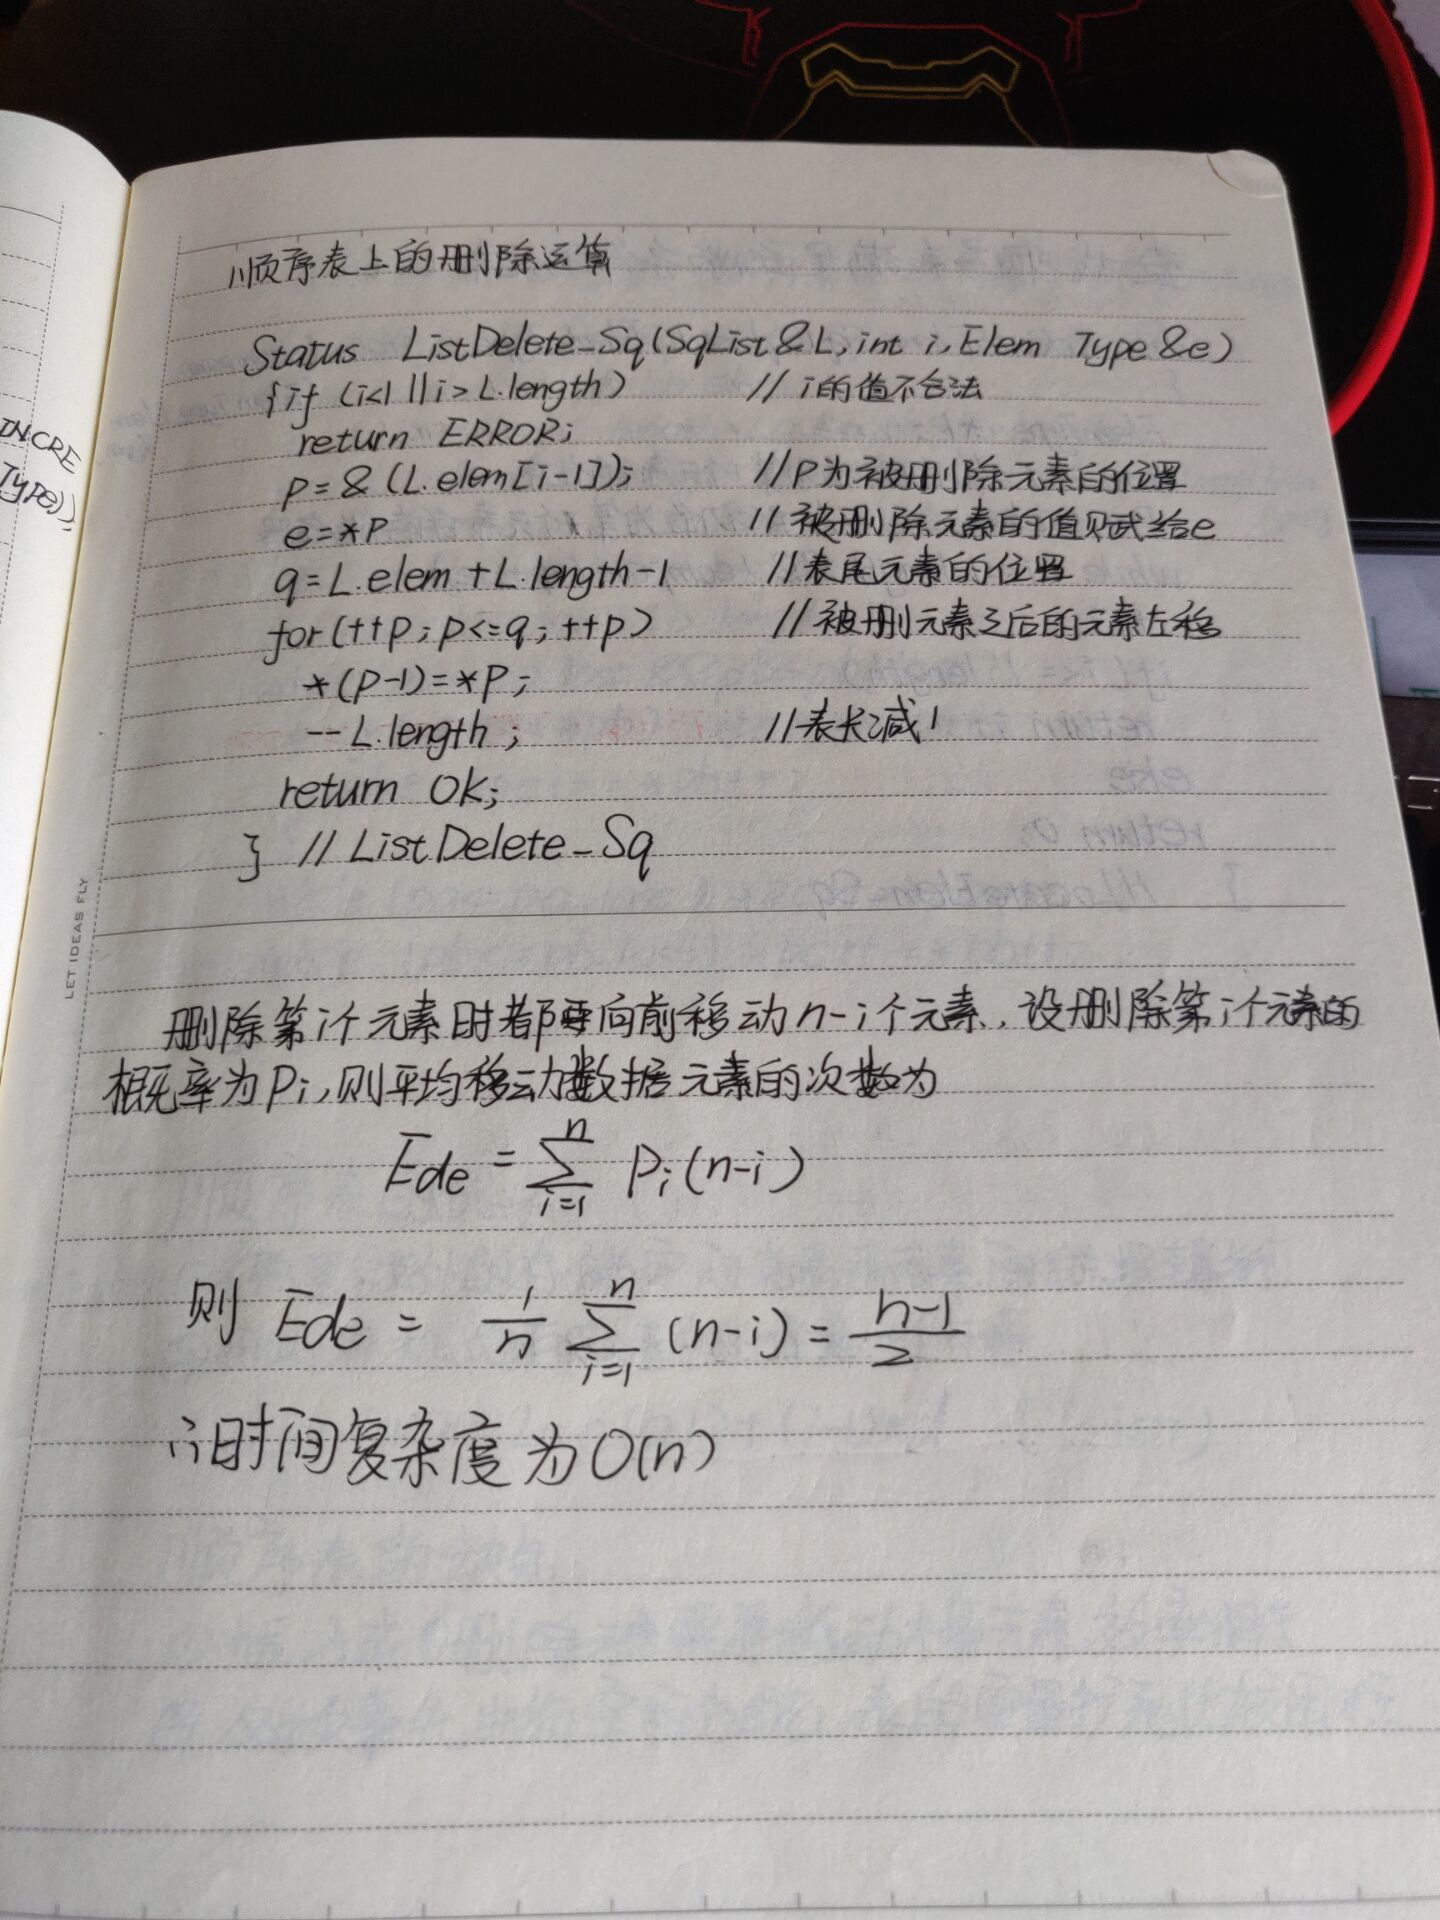 INCRE
Type));
顺序表上的删除运算
Status ListDelete_Sq(SqList &L, int i, Elem Type &e)
{if (i<1 || i> L.length) // i的值不合法
return ERROR;
p = & (L.elem[i-1]); // p为被删除元素的位置
e = *p // 被删除元素的值赋给e
q = L.elem + L.length-1 // 表尾元素的位置
for (++p; p<=q; ++p) // 被删元素之后的元素左移
*(p-1) = *p;
-- L.length; // 表长减1
return OK;
} // ListDelete_Sq
LET IDEAS FLY
删除第i个元素时都要向前移动n-i个元素,设删除第i个元素的
概率为Pi,则平均移动数据元素的次数为
Ede = ∑ⁿᵢ₌₁ Pi(n-i)
则 Ede = 1/n ∑ⁿᵢ₌₁ (n-i) = n-1/2
∴时间复杂度为O(n)